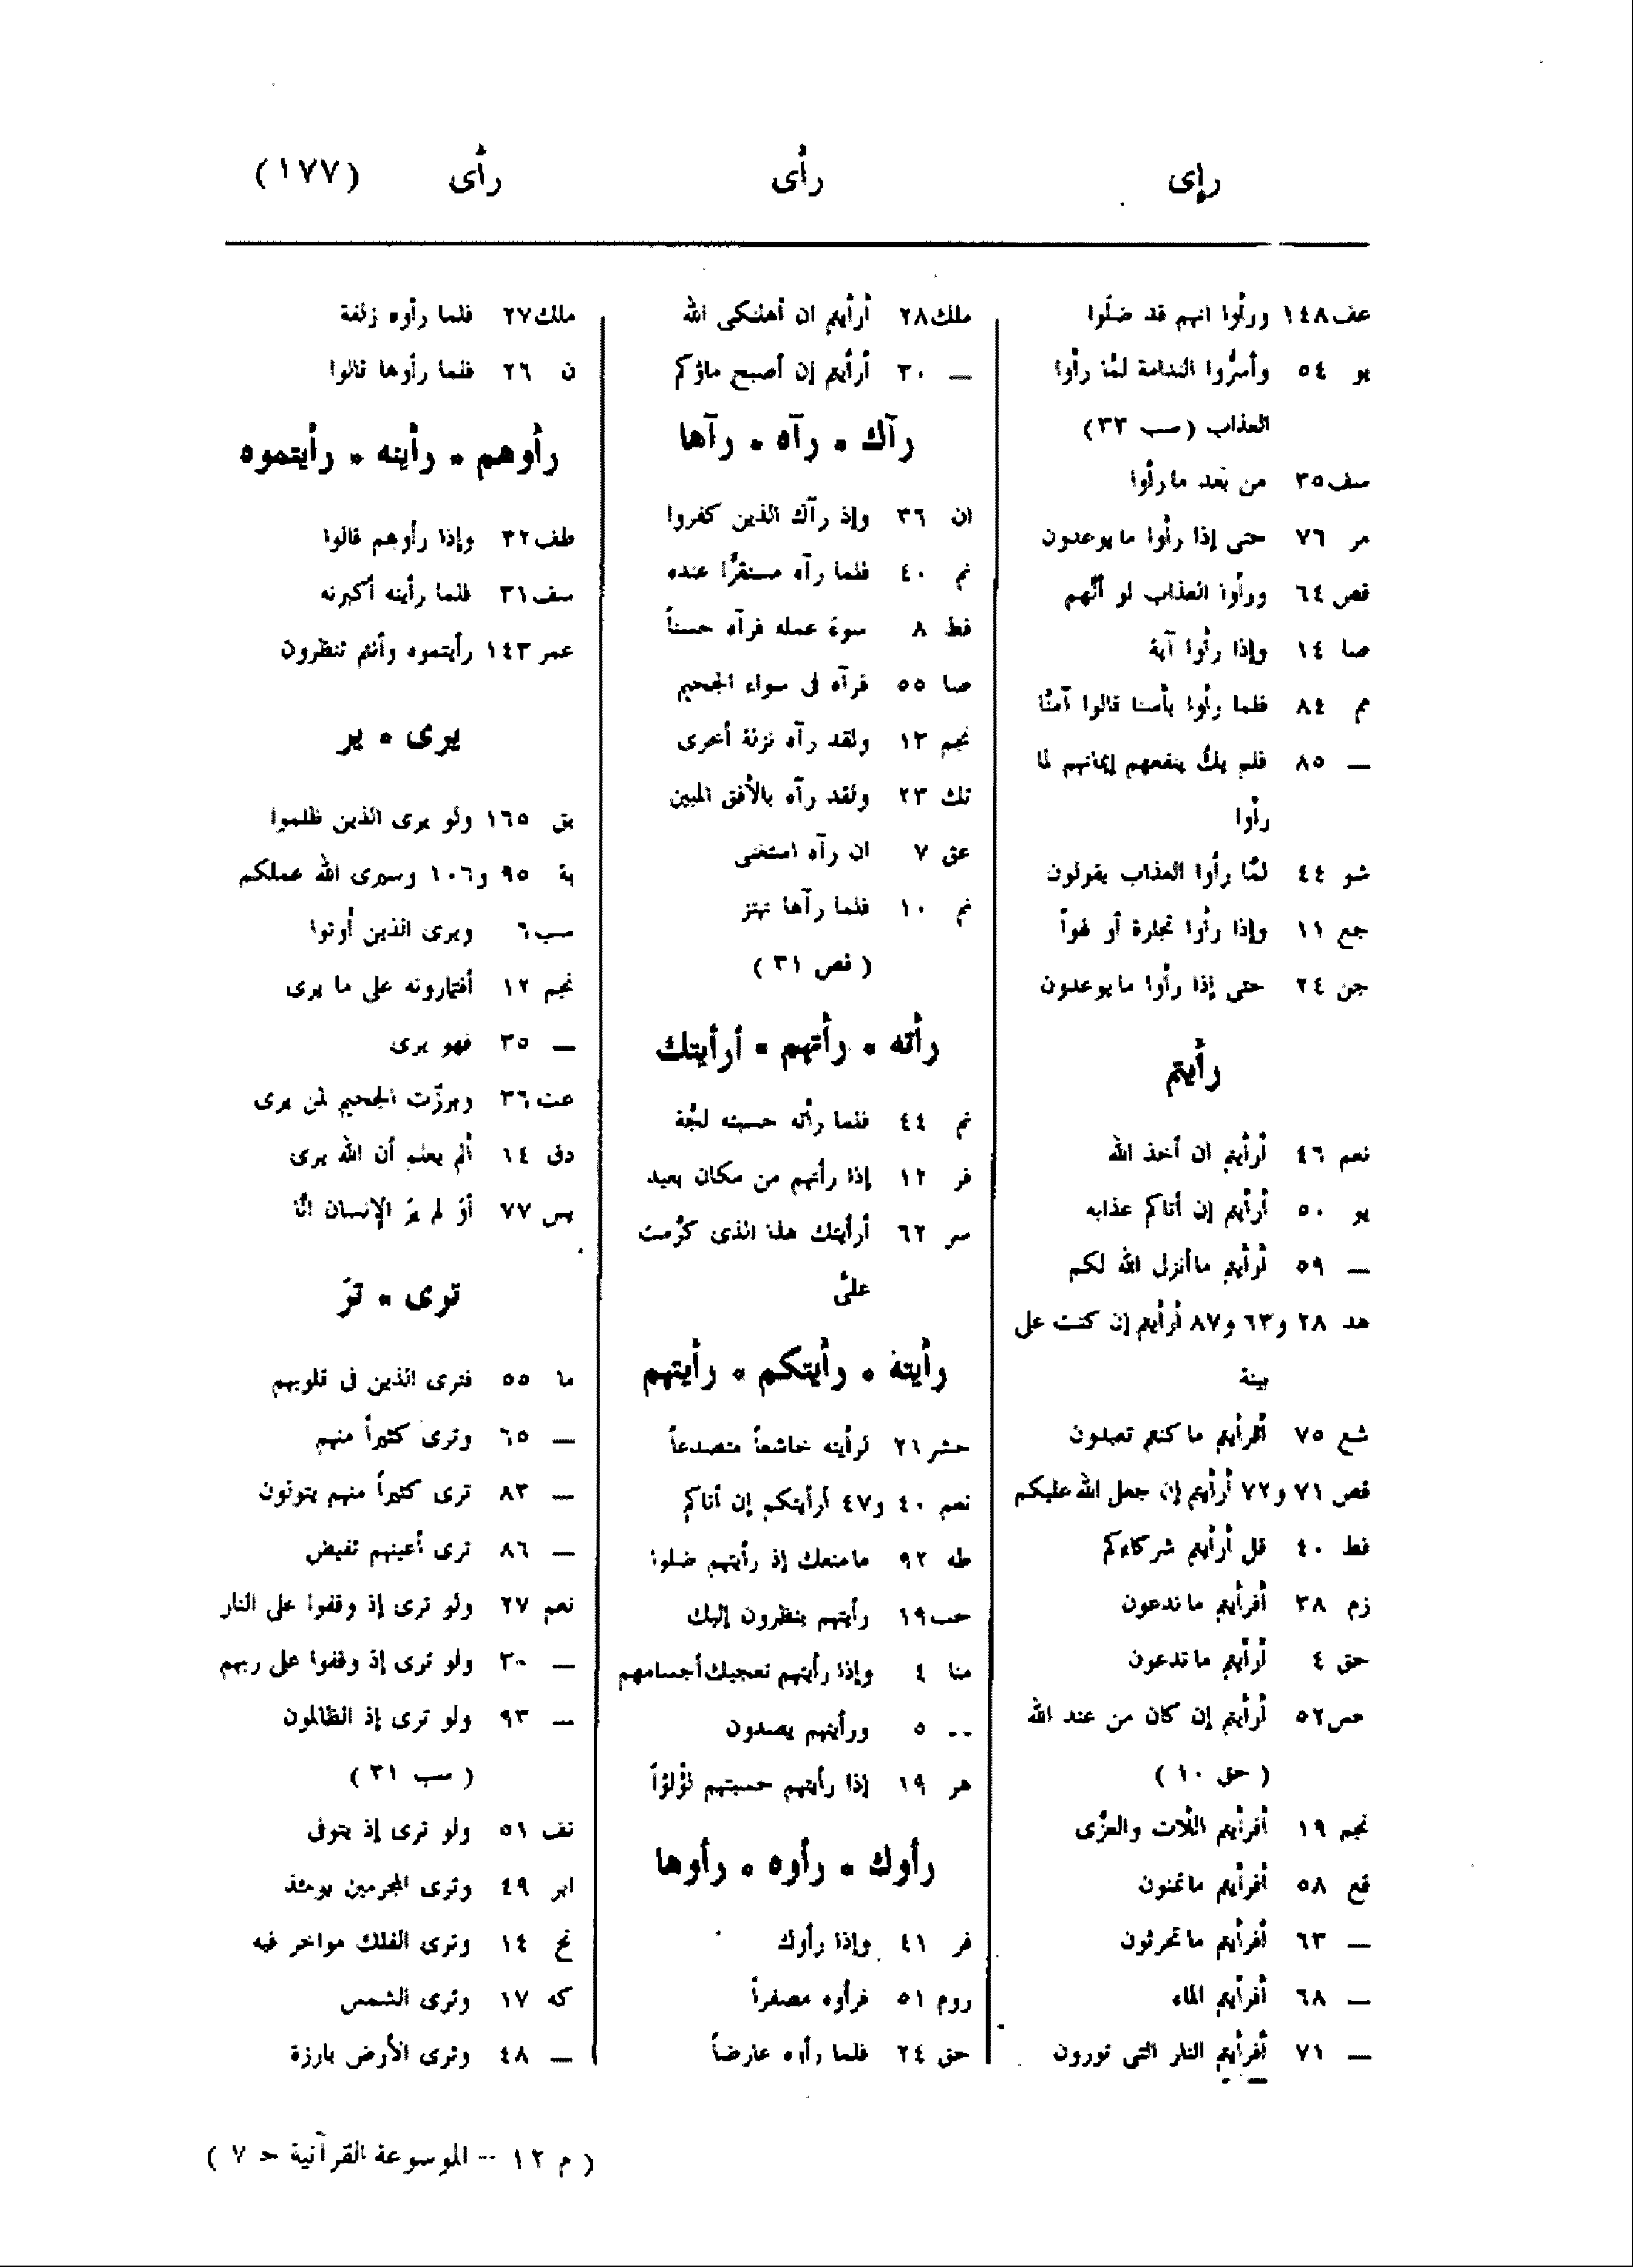 رإى
رأى
رأى
(١٧٧)
عف١٤٨ ورأوا انهم قد ضلّوا
يو ٥٤ وأسرُّوا الندامة لمّا رأوا
العذاب (سب ٣٣)
سف٣٥ من بَعد ما رأوا
مر ٧٦ حتى إذا رأوا ما يوعدون
قص ٦٤ ورأوا العذاب لو أنّهم
صا ١٤ وإذا رأوا آية
مم ٨٤ فلما رأوا بأسنا قالوا آمنّا
— ٨٥ فلم يكُ ينفعهم إيمانهم لما
رأوا
شو ٤٤ لمّا رأوا العذاب يقولون
جع ١١ وإذا رأوا تجارة أو لهواً
جن ٢٤ حتى إذا رأوا ما يوعدون
رأيتم
نعم ٤٦ أرأيتم ان أخذ الله
يو ٥٠ أرأيتم إن أتاكم عذابه
— ٥٩ أرأيتم ما أنزل الله لكم
هد ٢٨ و٦٣ و٨٧ أرأيتم إن كنت على
بينة
شع ٧٥ أفرأيتم ما كنتم تعبدون
قص ٧١ و٧٢ أرأيتم إن جعل الله عليكم
فط ٤٠ قل أرأيتم شركاءكم
زم ٣٨ أفرأيتم ما تدعون
حق ٤ أرأيتم ما تدعون
حص٥٢ أرأيتم إن كان من عند الله
( حق ١٠ )
نجم ١٩ أفرأيتم اللّات والعزّى
قع ٥٨ أفرأيتم ما تمنون
— ٦٣ أفرأيتم ما تحرثون
— ٦٨ أفرأيتم الماء
— ٧١ أفرأيتم النار التى تورون
ملك٢٨ أرأيتم ان أهلكنى الله
— ٣٠ أرأيتم إن أصبح ماؤكم
رآك * رآه * رآها
ان ٣٦ وإذ رآك الذين كفروا
نم ٤٠ فلما رآه مستقرًّا عنده
فط ٨ سوء عمله فرآه حسناً
صا ٥٥ فرآه فى سواء الجحيم
نجم ١٣ ولقد رآه نزلة أخرى
تك ٢٣ ولقد رآه بالأفق المبين
عق ٧ ان رآه استغنى
نم ١٠ فلما رآها تهتز
( قص ٣١ )
رأته * رأتهم * أرأيتك
نم ٤٤ فلما رأته حسبته لجّة
فر ١٢ إذا رأتهم من مكان بعيد
سر ٦٢ أرأيتك هذا الذى كرّمت
علىّ
رأيته * رأيتكم * رأيتهم
حشر٢١ لرأيته خاشعاً متصدعاً
نعم ٤٠ و٤٧ أرأيتكم إن أتاكم
طه ٩٢ ما منعك إذ رأيتهم ضلوا
حب١٩ رأيتهم ينظرون إليك
منا ٤ وإذا رأيتهم تعجبك أجسامهم
-- ٥ ورأيتهم يصدون
هر ١٩ إذا رأيتهم حسبتهم لؤلؤاً
رأوك * رأوه * رأوها
فر ٤١ وإذا رأوك
روم ٥١ فرأوه مصفراً
حق ٢٤ فلما رأوه عارضاً
ملك٢٧ فلما رأوه زلفة
ن ٢٦ فلما رأوها قالوا
رأوهم * رأينه * رأيتموه
طف٣٢ وإذا رأوهم قالوا
سف٣١ فلما رأينه أكبرنه
عمر ١٤٣ رأيتموه وأنتم تنظرون
يرى * ير
بق ١٦٥ ولو يرى الذين ظلموا
بة ٩٥ و١٠٦ وسيرى الله عملكم
سب٦ ويرى الذين أوتوا
نجم ١٢ أفتمارونه على ما يرى
— ٣٥ فهو يرى
عت٣٦ وبرزّت الجحيم لمن يرى
دق ١٤ ألم يعلم أن الله يرى
يس ٧٧ أوَ لم يرَ الإنسان انّا
ترى * ترَ
ما ٥٥ فترى الذين فى قلوبهم
— ٦٥ وترى كثيراً منهم
— ٨٣ ترى كثيراً منهم يتولون
— ٨٦ ترى أعينهم تفيض
نعم ٢٧ ولو ترى إذ وقفوا على النار
— ٣٠ ولو ترى إذ وقفوا على ربهم
— ٩٣ ولو ترى إذ الظالمون
( سب ٣١ )
نف ٥١ ولو ترى إذ يتوفى
ابر ٤٩ وترى المجرمين يومئذ
نح ١٤ وترى الفلك مواخر فيه
كه ١٧ وترى الشمس
— ٤٨ وترى الأرض بارزة
( م ١٢ -- الموسوعة القرآنية حـ ٧ )